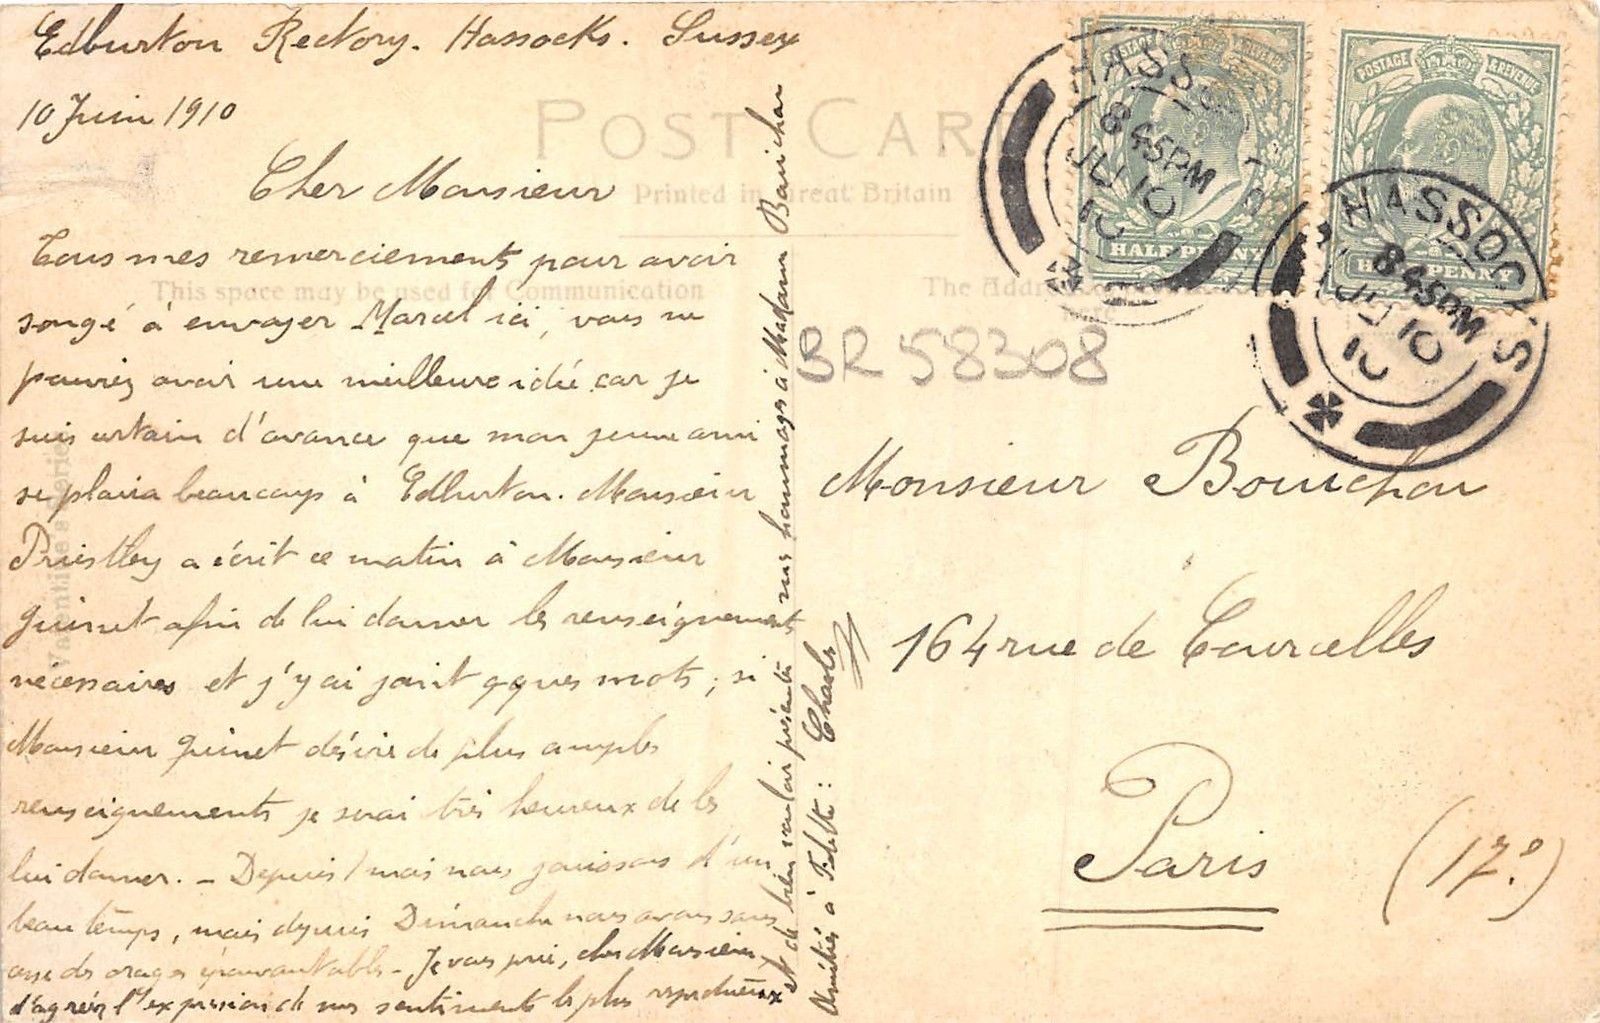 Edburton Rectory. Hassocks. Sussex
10 Juin 1910
POST CAR
Printed in Great Britain
This space may be used for Communication
The Addre
Valentine's Serie
Cher Monsieur
Tous mes remerciements pour avoir
songé à envoyer Marcel ici, vous ne
pouviez avoir une meilleure idée car je
suis certain d'avance que mon jeune ami
se plaira beaucoup à Edburton. Monsieur
Priestley a écrit ce matin à Monsieur
Guinet afin de lui donner les renseignements
nécessaires et j'y ai joint qques mots; si
Monsieur Guinet désire de plus amples
renseignements je serai très heureux de les
lui donner. - Depuis 1 mois nous jouissons d'un
beau temps, mais depuis Dimanche nous avons
des orages épouvantables - Je vous prie, cher Monsieur,
d'agréer l'expression de mes sentiments les plus respectueux
et de bien vouloir présenter mes hommages à Madame Bouichou
Amitiés à : Charles
BR 58308
Monsieur Bouichou
164 rue de Courcelles
Paris
(17e.)
POSTAGE & REVENUE
HALF PENNY
HASSOCKS
8 45 PM
JU 10
10
POSTAGE & REVENUE
HALF PENNY
HASSOCKS
8 45 PM
JU 10
10